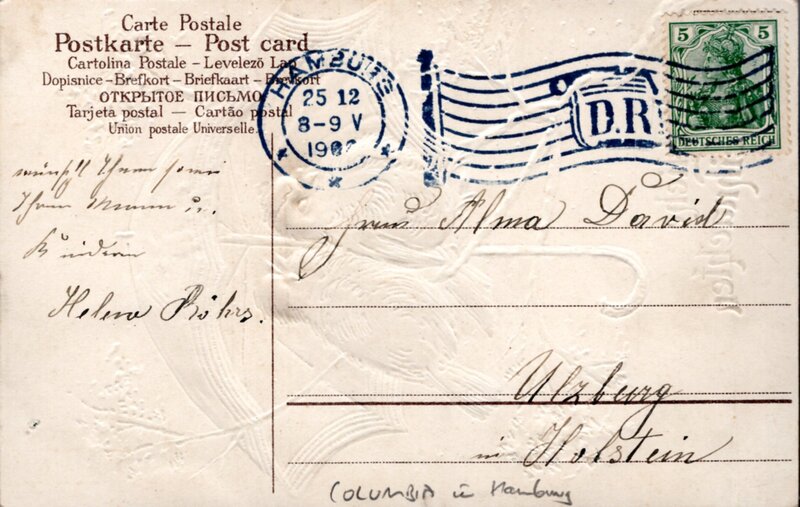 Carte Postale
Postkarte – Post card
Cartolina Postale – Levelező Lap
Dopisnice – Brefkort – Briefkaart – Brevkort
ОТКРЫТОЕ ПИСЬМО
Tarjeta postal – Cartão postal
Union postale Universelle.
HAMBURG
25 12
8-9 V
190
D.R
5 5
DEUTSCHES REICH
wünscht Ihnen sowie
Ihrem Mann u.
Kindern
Helene Röhrs.
Frau Alma David
Ulzburg
in Holstein
COLUMBIA in Hamburg